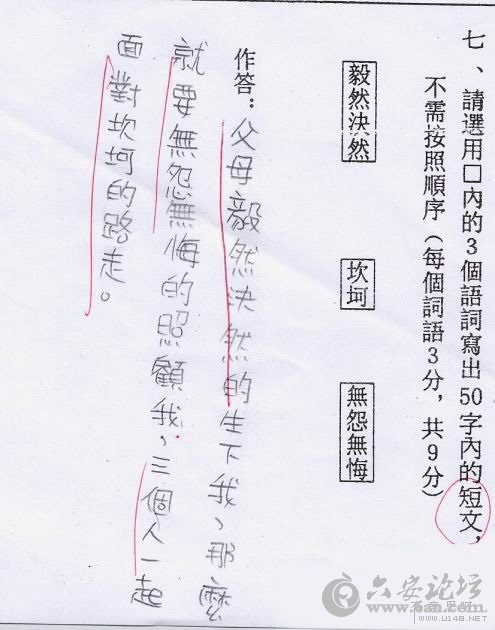 七、請選用□內的3個語詞寫出50字內的短文，
不需按照順序（每個詞語3分，共9分）
毅然決然　坎坷　無怨無悔
作答：父母毅然決然的生下我、那麼
就要無怨無悔的照顧我、三個人一起
面對坎坷的路走。
六安论坛
www.U148.NET